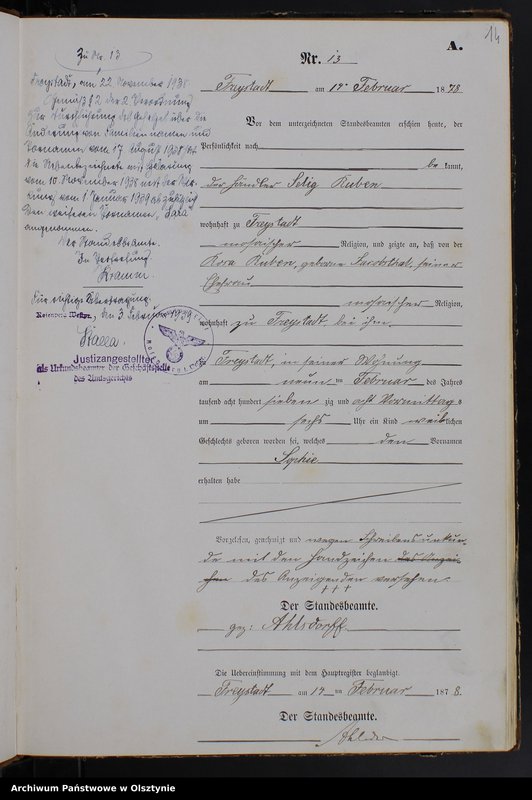 14
A.
Zu Nr. 13
Freystadt, am 22. November 1938
Gemäß § 2 der 2. Verordnung
zur Durchführung des Gesetzes über die
Änderung von Familiennamen und
Vornamen vom 17. August 1938 hat
die Nebenbezeichnete mit Erklärung
vom 10. November 1938 mit der Wir-
kung vom 1. Januar 1939 ab zusätzlich
den weiteren Vornamen „Sara“
angenommen.
Der Standesbeamte.
In Vertretung
Kramm.
Für richtige Übertragung.
Rosenberg Westpr., den 3. Februar 1939
Justizangestellter
als Urkundsbeamter der Geschäftsstelle
des Amtsgerichts
Nr. 13
Freystadt am 12. Februar 1878
Vor dem unterzeichneten Standesbeamten erschien heute, der
Persönlichkeit nach
be kannt,
der Händler Selig Ruben
wohnhaft zu Freystadt
mosaischer Religion, und zeigte an, daß von der
Ruben, geborene seiner
Ehefrau
mosaischer Religion,
wohnhaft zu Freystadt bei ihm
zu Freystadt, in seiner Wohnung
am neun ten Februar des Jahres
tausend acht hundert sieben zig und acht Vormittag s
um sechs Uhr ein Kind weiblichen
Geschlechts geboren worden sei, welches den Vornamen
Sophie
erhalten habe
Vorgelesen, genehmigt und wegen Schreibensunkun-
de mit den Handzeichen des Anzei-
chen des Anzeigenden versehen.
+++
Der Standesbeamte.
gez: Ahlsdorff.
Die Uebereinstimmung mit dem Hauptregister beglaubigt.
Freystadt am 12 ten Februar 1878.
Der Standesbeamte.
Archiwum Państwowe w Olsztynie